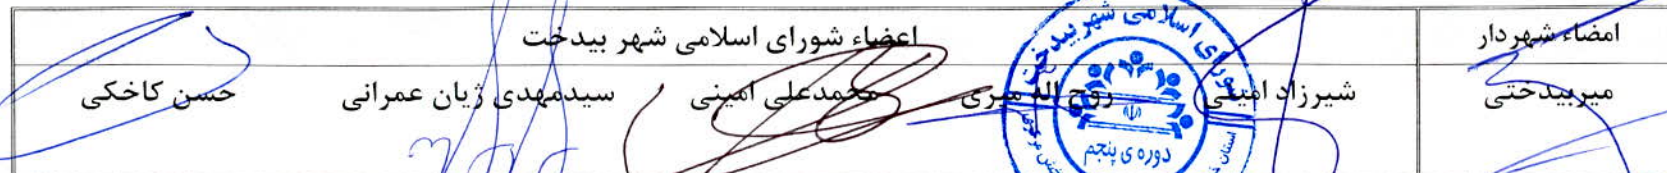 امضاء شهردار
اعضاء شورای اسلامی شهر بیدخت
میربیدختی
شیرزاد امینی روح اله میری محمدعلی امینی سیدمهدی ژیان عمرانی حسن کاخکی
شورای اسلامی شهر بیدخت
دوره ی پنجم